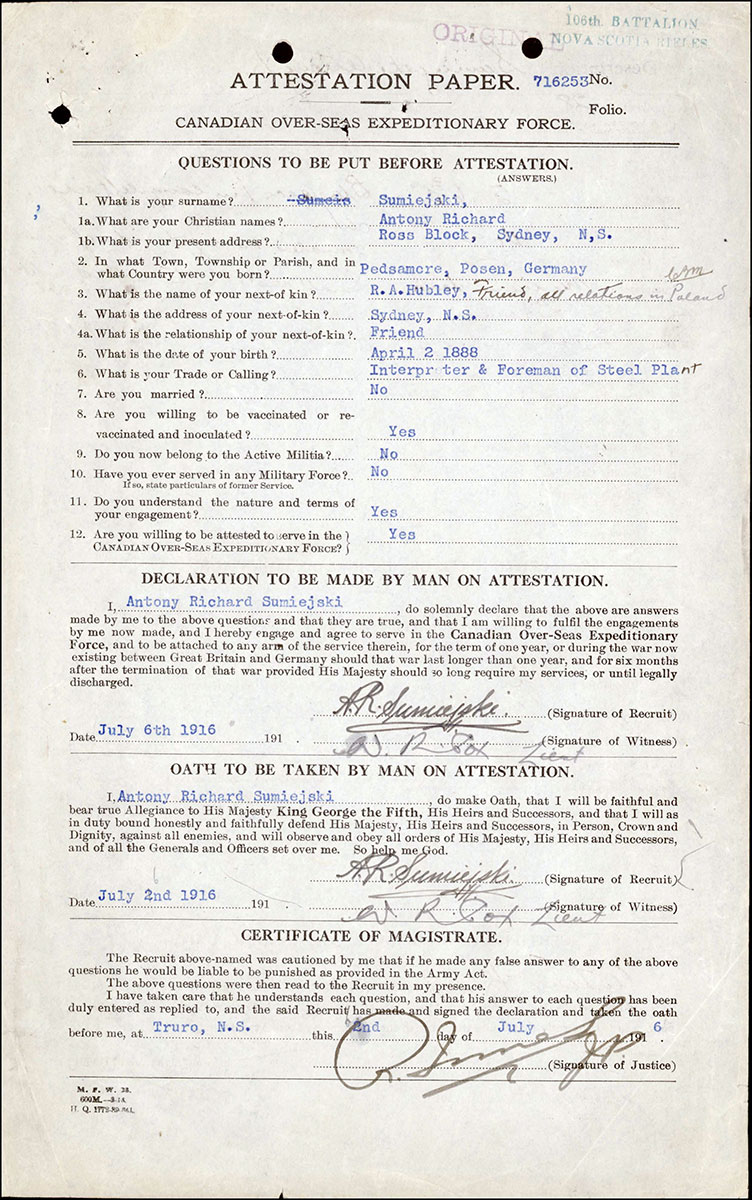 ORIGINAL
106th. BATTALION
NOVA SCOTIA RIFLES
ATTESTATION PAPER. 716253 No.
Folio.
CANADIAN OVER-SEAS EXPEDITIONARY FORCE.
QUESTIONS TO BE PUT BEFORE ATTESTATION.
(ANSWERS.)
1. What is your surname? Sumeis Sumiejski,
1a. What are your Christian names? Antony Richard
1b. What is your present address? Ross Block, Sydney, N,S.
2. In what Town, Township or Parish, and in
what Country were you born? Pedsamcre, Posen, Germany
3. What is the name of your next-of kin? R.A.Hubley, Friend, all relations in Poland
4. What is the address of your next-of-kin? Sydney, N.S.
4a. What is the relationship of your next-of-kin? Friend
5. What is the date of your birth? April 2 1888
6. What is your Trade or Calling? Interpreter & Foreman of Steel Plant
7. Are you married? No
8. Are you willing to be vaccinated or re-
vaccinated and inoculated? Yes
9. Do you now belong to the Active Militia? No
10. Have you ever served in any Military Force? No
If so, state particulars of former Service.
11. Do you understand the nature and terms of
your engagement? Yes
12. Are you willing to be attested to serve in the
CANADIAN OVER-SEAS EXPEDITIONARY FORCE? Yes
DECLARATION TO BE MADE BY MAN ON ATTESTATION.
I, Antony Richard Sumiejski, do solemnly declare that the above are answers
made by me to the above questions and that they are true, and that I am willing to fulfil the engagements
by me now made, and I hereby engage and agree to serve in the Canadian Over-Seas Expeditionary
Force, and to be attached to any arm of the service therein, for the term of one year, or during the war now
existing between Great Britain and Germany should that war last longer than one year, and for six months
after the termination of that war provided His Majesty should so long require my services, or until legally
discharged.
A.R. Sumiejski. (Signature of Recruit)
Date July 6th 1916 191 . W R Fox Lieut (Signature of Witness)
OATH TO BE TAKEN BY MAN ON ATTESTATION.
I, Antony Richard Sumiejski, do make Oath, that I will be faithful and
bear true Allegiance to His Majesty King George the Fifth, His Heirs and Successors, and that I will as
in duty bound honestly and faithfully defend His Majesty, His Heirs and Successors, in Person, Crown and
Dignity, against all enemies, and will observe and obey all orders of His Majesty, His Heirs and Successors,
and of all the Generals and Officers set over me. So help me God.
A.R. Sumiejski (Signature of Recruit)
Date July 2nd 1916 191 . W R Fox Lieut (Signature of Witness)
CERTIFICATE OF MAGISTRATE.
The Recruit above-named was cautioned by me that if he made any false answer to any of the above
questions he would be liable to be punished as provided in the Army Act.
The above questions were then read to the Recruit in my presence.
I have taken care that he understands each question, and that his answer to each question has been
duly entered as replied to, and the said Recruit has made and signed the declaration and taken the oath
before me, at Truro, N.S. this 2nd day of July 191 6
(Signature of Justice)
M. F. W. 23.
H. Q. 1772-39-841.